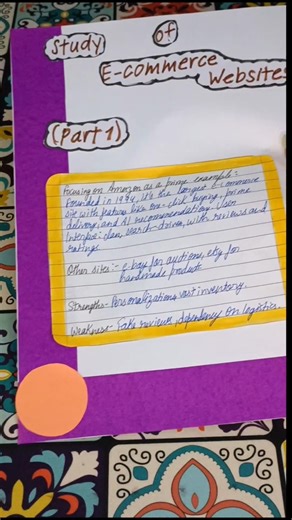 Study of
E-Commerce
Websites
(Part 1)
Focusing on Amazon as a prime example:-
Founded in 1994, It's the largest E-commerce
site with feature like one-click buying, prime
delivery, and AI recommendations. User
Interface: clean, search-driven, with reviews and
ratings
Other sites:- e bay for auctions, etsy for
handmade products
Strengths- Personalizations vast inventory.
Weakness- Fake reviews, dependency on logistics.